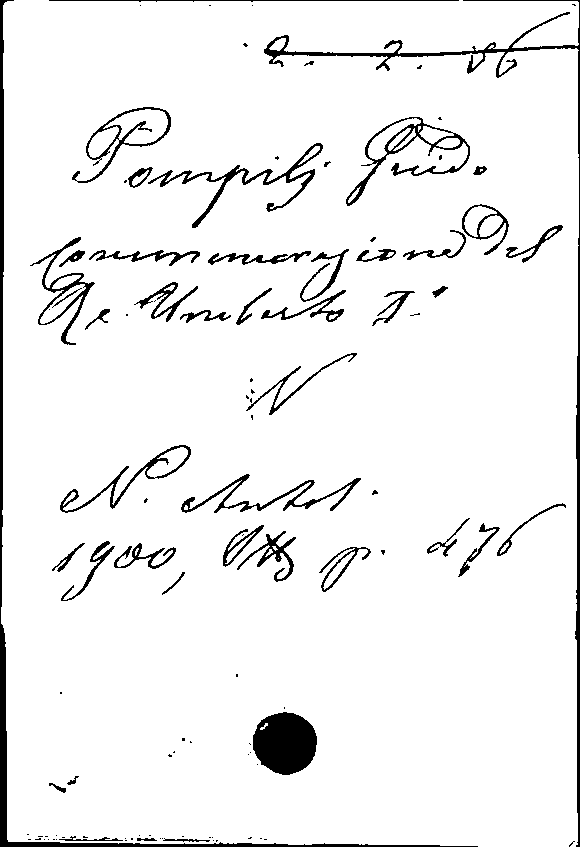 2. 2. 86
Pompilj Guido
Commemorazione del
Re Umberto I.°
N
N. Antol.
1900, p. 476